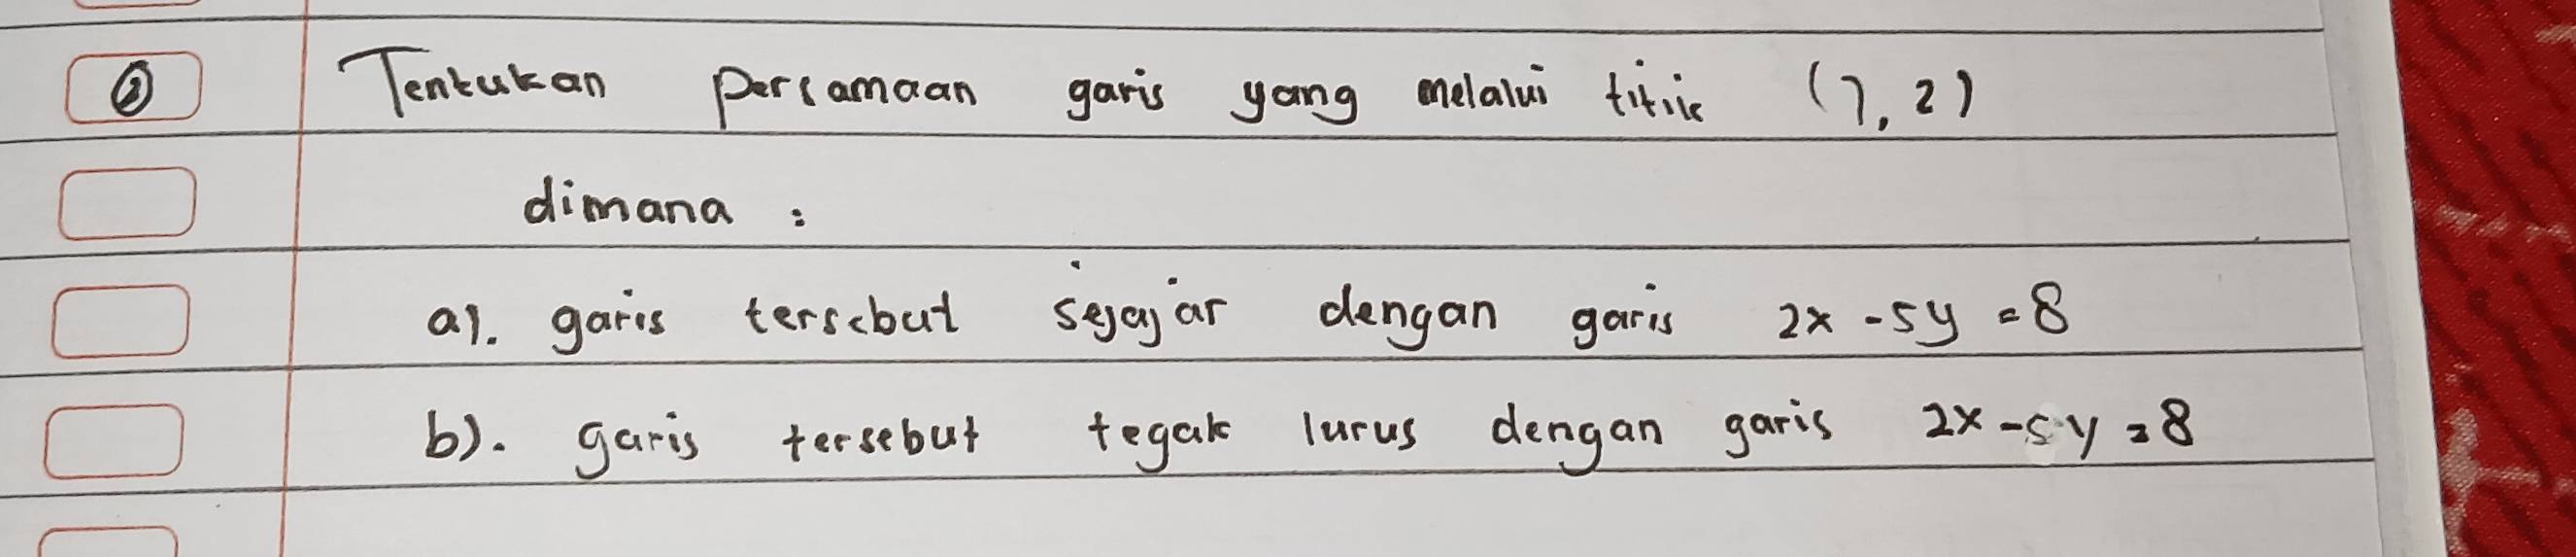 ② Tentukan persamaan garis yang melalui titik (7, 2)
dimana :
a). garis tersebut sejajar dengan garis 2x - 5y = 8
b). garis tersebut tegak lurus dengan garis 2x - 5y = 8